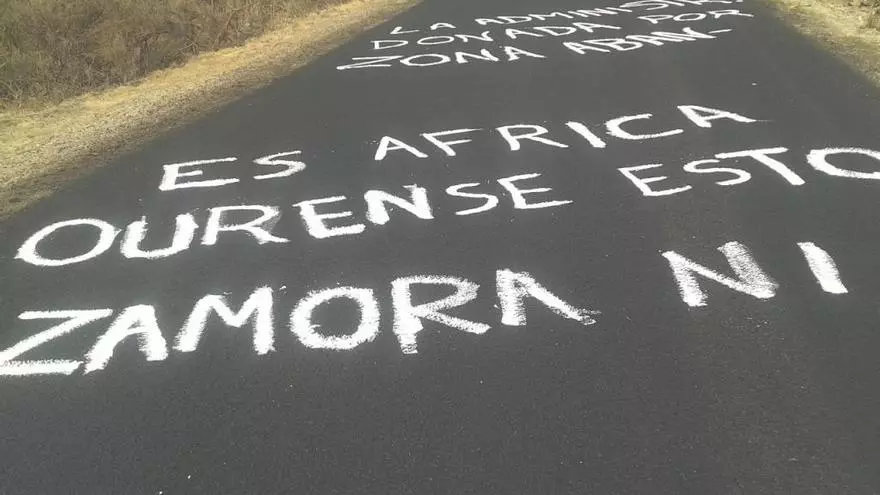 ZAMORA NI
OURENSE ESTO
ES AFRICA
ZONA ABAN-
DONADA POR
LA ADMINISTR